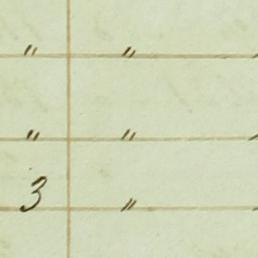 " "
" "
3 "